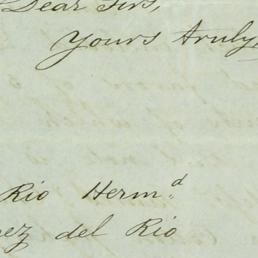 Dear Sirs,
Yours truly,
Rio Herm.d
ez del Rio